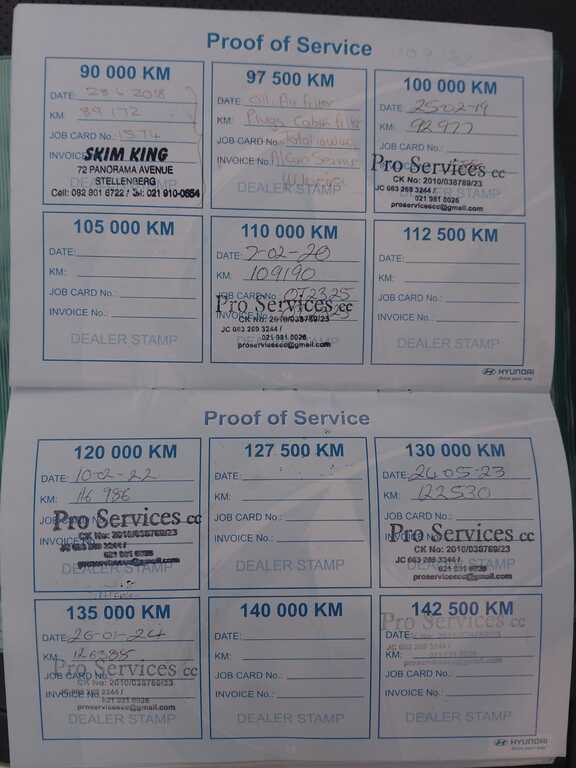 Proof of Service
90 000 KM
DATE: 28-6-2018
KM: 89 172
JOB CARD No.: 1574
INVOICE
SKIM KING
72 PANORAMA AVENUE
STELLENBERG
DEALER STAMP
97 500 KM
DATE: Oil Air filter
KM: Plugs Cabin filter
JOB CARD No.:
INVOICE No.:
DEALER STAMP
100 000 KM
DATE: 25-02-19
KM: 92977
JOB CARD No.:
INVOICE
Pro Services cc
CK No: 2010/038769/23
JC 063 269 3244 /
021 981 0026
proservicescc@gmail.com
105 000 KM
DATE:
KM:
JOB CARD No.:
INVOICE No.:
DEALER STAMP
110 000 KM
DATE: 7-02-20
KM: 109190
JOB CARD No.: OT2325
INVOICE No.:
Pro Services cc
CK No: 2010/038769/23
JC 063 269 3244 /
021 981 0026
proservicescc@gmail.com
112 500 KM
DATE:
KM:
JOB CARD No.:
INVOICE No.:
DEALER STAMP
HYUNDAI
Proof of Service
120 000 KM
DATE: 10-02-22
KM: 116 986
JOB CARD No.:
INVOICE No.
Pro Services cc
CK No: 2010/038769/23
JC 063 269 3244 /
021 981 0026
proservicescc@gmail.com
DEALER STAMP
127 500 KM
DATE:
KM:
JOB CARD No.:
INVOICE No.:
DEALER STAMP
130 000 KM
DATE: 24-05-23
KM: 122530
JOB CARD No.:
INVOICE No.
Pro Services cc
CK No: 2010/038769/23
JC 063 269 3244 /
021 981 0026
proservicescc@gmail.com
DEALER STAMP
135 000 KM
DATE: 26-01-24
KM: 126385
JOB CARD No.:
INVOICE No.
Pro Services cc
CK No: 2010/038769/23
JC 063 269 3244 /
021 981 0026
proservicescc@gmail.com
DEALER STAMP
140 000 KM
DATE:
KM:
JOB CARD No.:
INVOICE No.:
DEALER STAMP
142 500 KM
Pro Services cc
DATE:
KM:
JOB CARD No.:
INVOICE No.:
DEALER STAMP
HYUNDAI